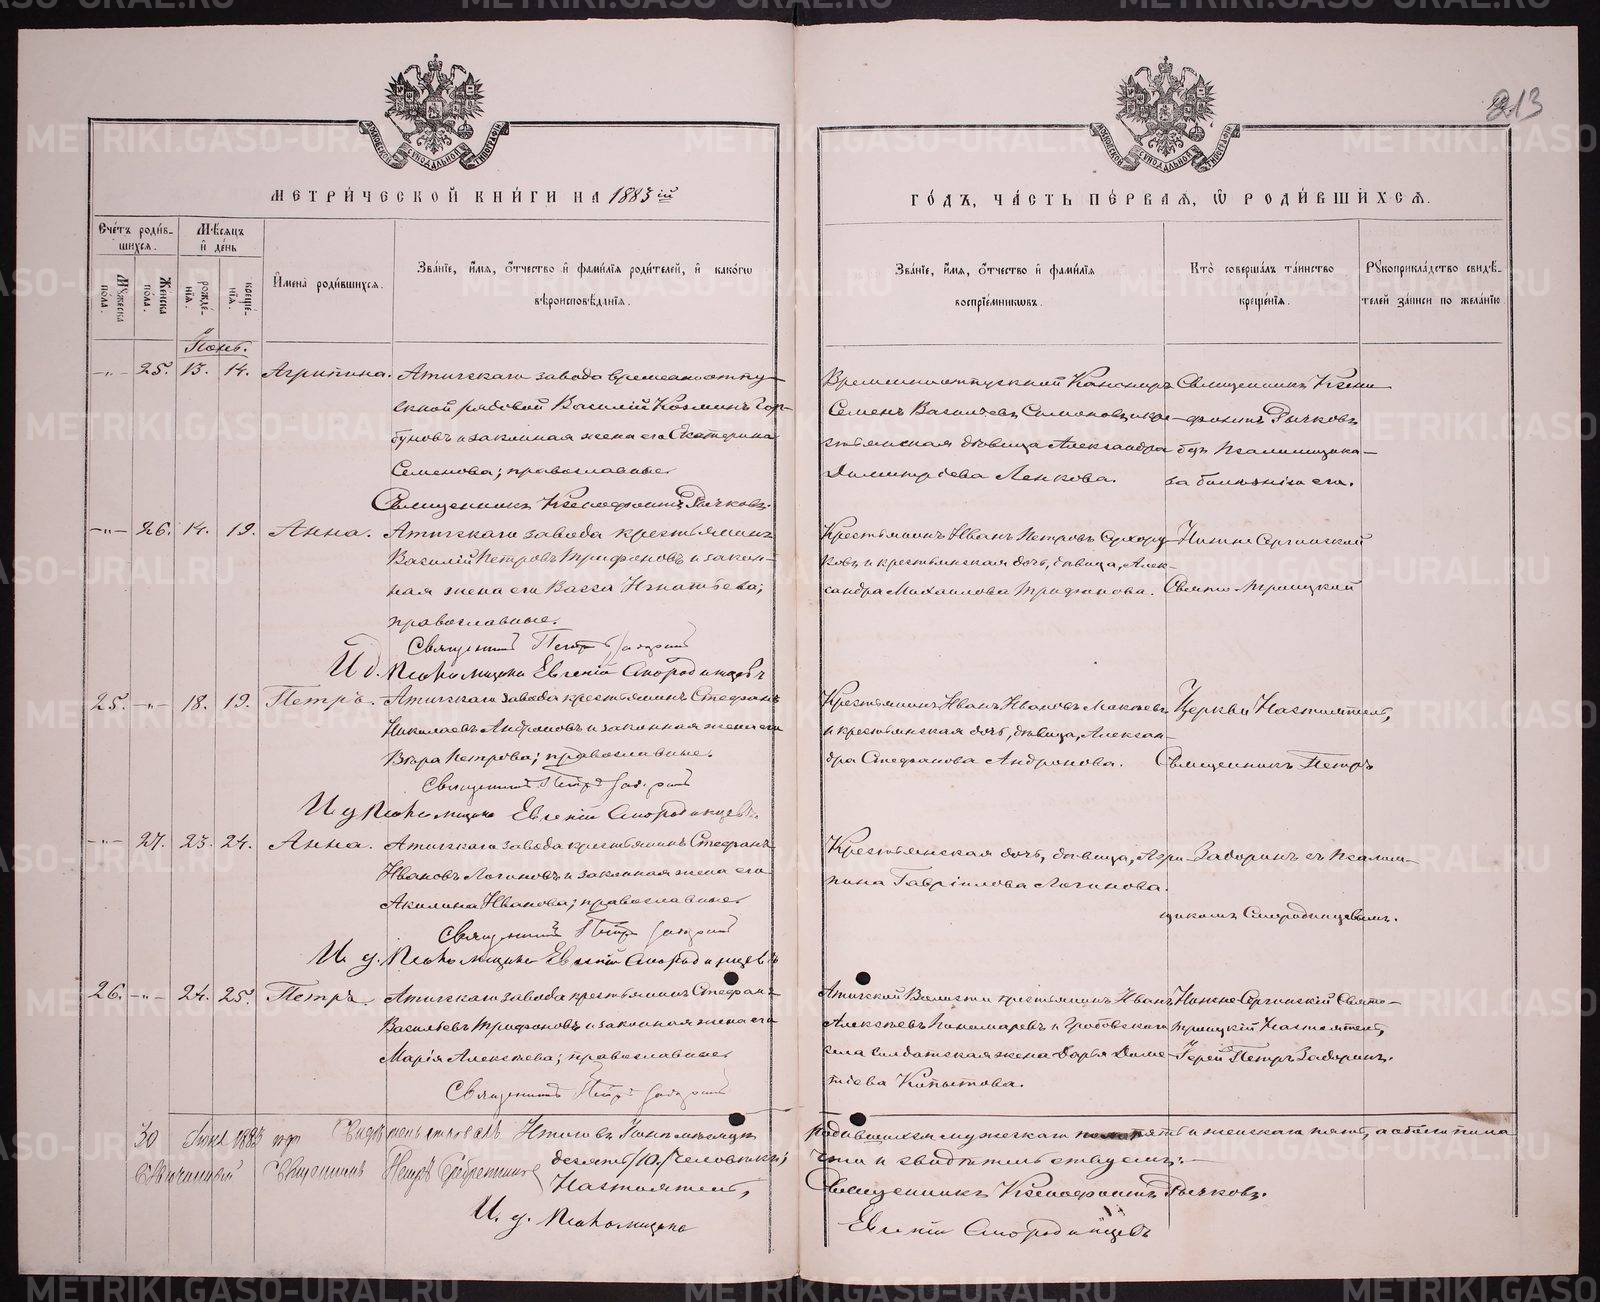 213
МЕТРИ́ЧЕСКОЙ КНИ́ГИ НА 1883 ій
ГО́ДЪ, ЧА́СТЬ ПЕ́РВАЯ, Ѡ РОДИ́ВШИХСЯ.
Сче́тъ роди́вшихся.
Мѣ́сяцъ и де́нь
Мужеска пола.
Женска пола.
рожде́нія.
креще́нія.
Имена̀ роди́вшихся.
Зва́нїе, и́мя, ѻ́тчество и фами́лїя роди́телей, и како́гѡ
вѣроисповѣ́данїя.
Зва́нїе, и́мя, ѻ́тчество и фами́лїя
воспрїе́мниковъ.
Кто̀ соверша́лъ та́инство
креще́нїя.
Рукоприкла́дство свидѣ́-
телей за́писи по жела́нїю
Іюнь.
-"- 25. 13. 14. Агрипина. Атигскаго завода временноотпу-
скной рядовой Василій Козминъ Гор-
буновъ и законная жена его Екатерина
Семенова; православные
Священникъ Ксенофонтъ Рычковъ.
Временноотпускной Канониръ
Семенъ Василіевъ и кре-
стьянская дѣвица Александра
Димитріева Ленкова.
Священникъ Ксено-
фонтъ Рычковъ
безъ псаломщика
за болѣзнію его.
-"- 26. 14. 19. Анна. Атигскаго завода крестьянинъ
Василій Петровъ Трифоновъ и закон-
ная жена его Васса Игнатьева;
православные.
Священникъ Петръ Заборинъ
И д. Псаломщика Евгеній Смородинцевъ
Крестьянинъ Иванъ Петровъ Сухору-
ковъ и крестьянская дочь, дѣвица, Алек-
сандра Михаилова Трифонова.
Нижне Сергинской
Свято Троицкой
25. -"- 18. 19. Петръ. Атигскаго завода крестьянинъ Стефанъ
Николаевъ Андроновъ и законная жена его
Вѣра Петрова; православные.
Священникъ Петръ Заборинъ
И д Псаломщика Евгеній Смородинцевъ.
Крестьянинъ Иванъ Ивановъ
и крестьянская дочь, дѣвица, Алексан-
дра Стефанова Андронова.
Церкви Настоятель,
Священникъ Петръ
-"- 27. 23. 24. Анна. Атигскаго завода крестьянинъ Стефанъ
Ивановъ Логиновъ и законная жена его
Акилина Иванова; православные
Священникъ Петръ Заборинъ
И. д. Псаломщика Евгеній Смородинцевъ
Крестьянская дочь, дѣвица, Агри-
пина Гавріилова Логинова.
Заборинъ съ псалом-
щикомъ Смородинцевымъ.
26. -"- 24. 25. Петръ. Атигскаго завода крестьянинъ Стефанъ
Васильевъ Трифоновъ и законная жена его
Марія Алексѣева; православные
Священникъ Петръ Заборинъ
Атигской Волости крестьянинъ Иванъ
Алексѣевъ Пономаревъ и Гробовскаго
села солдатская жена Дарья Доме-
тіева Копытова.
Нижне Сергинскій Свято-
Троицкій Настоятель,
Іерей Петръ Заборинъ.
30 Іюня 1883 года Свидѣтельствовалъ
Благочинный Священникъ
Итого въ Іюнѣ мѣсяцѣ
десять /10./ человѣкъ;
Настоятель,
И. д. Псаломщика
родившихся мужескаго пять и женскаго пять, а обоего пола
что и свидѣтельствуемъ:
Священникъ Ксенофонтъ Рычковъ.
Евгеній Смородинцевъ
METRIKI.GASO-URAL.RU